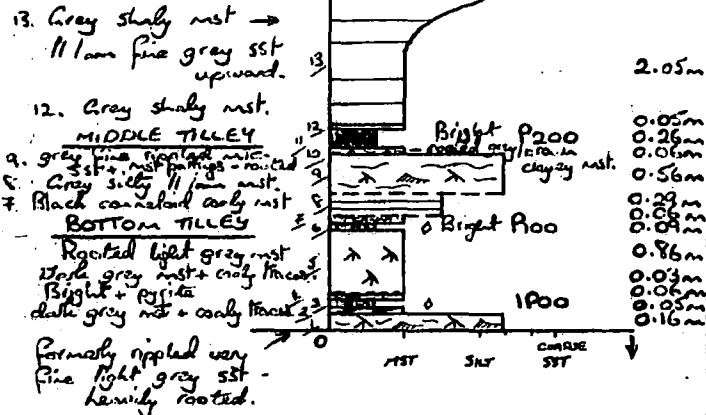 13. Grey shaly mst →
// lam fine grey sst
upward.
12. Grey shaly mst.
MIDDLE TILLEY
9. grey fine rippled mic.
sst + mst partings - rooted
8. Grey silty // lam mst.
7. Black canneloid coaly mst
BOTTOM TILLEY
Rooted light grey mst
Dark grey mst + coaly traces.
Bright + pyrite
dark grey mst + coaly traces
formerly rippled very
fine light grey sst -
heavily rooted.
13
12
11
10
9
8
7
6
5
4
3
2
1
Bright P200
rooted grey brown
clayey mst.
Bright P100
1P00
0
MST SILT COARSE
SST
2.05m
0.05m
0.26m
0.06m
0.56m
0.29m
0.06m
0.09m
0.86m
0.03m
0.06m
0.05m
0.16m